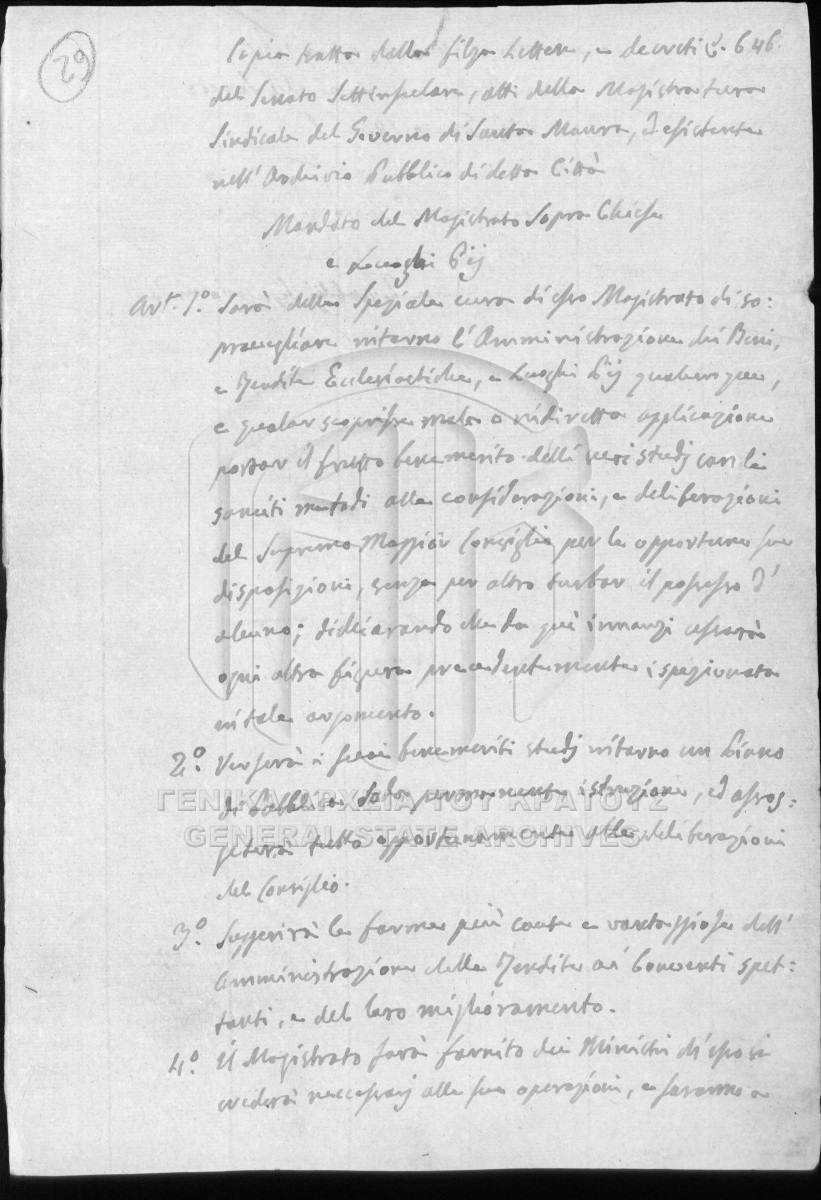 29
Copia tratta dalla filza Lettere, e decreti C. 646.
del Senato Settinsulare, atti della Magistratura
Sindicale del Governo di Santa Maura, ed esistente
nell' Archivio Pubblico di detta Città
Mandato del Magistrato Sopra Chiese
e Luoghi Pij
Art. 1.º Sarà della speziale cura di esso Magistrato di so:
pravegliare intorno l'Amministrazione dei Beni,
e Rendite Ecclesiastiche, e Luoghi Pij qualunque,
e qualor scoprisse mala o indiretta applicazione
portar il frutto benemerito delli suoi studj con li
sanciti metodi alle considerazioni, e deliberazioni
del Supremo Maggior Consiglio per le opportune sue
disposizioni, senza per altro turbar il possesso d'
alcuno; dichiarando che da quì innanzi cesserà
ogni altra figura precedentemente ispezionata
in tale argomento.
2.º Verserà i suoi benemeriti studj intorno un Piano
di pubblica soda permanente istruzione, ed assog:
getterà tutto opportunamente alle deliberazioni
del Consiglio.
3.º Suggerirà le forme più caute e vantaggiose dell'
Amministrazione delle Rendite ai Conventi spet:
tanti, e del loro miglioramento.
4.º Il Magistrato sarà fornito dei Ministri ch'esso si
crederà necessarj alle sue operazioni, e saranno a
ΓΕΝΙΚΑ ΑΡΧΕΙΑ ΤΟΥ ΚΡΑΤΟΥΣ
GENERAL STATE ARCHIVES